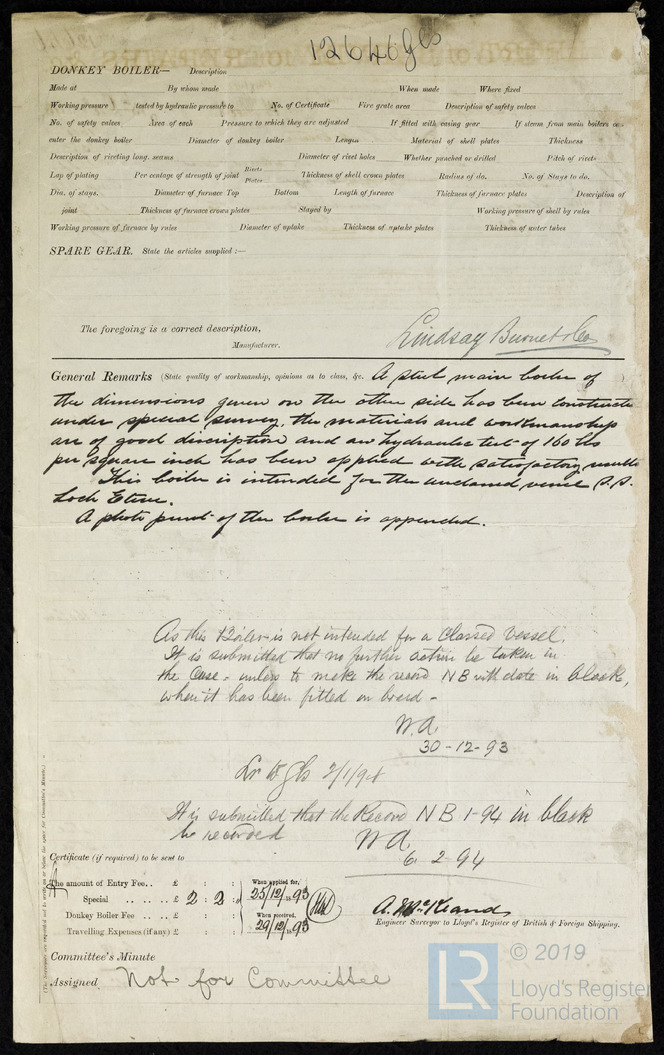 12646 Gls
DONKEY BOILER— Description
Made at By whom made When made Where fixed
Working pressure tested by hydraulic pressure to No. of Certificate Fire grate area Description of safety valves
No. of safety valves Area of each Pressure to which they are adjusted If fitted with easing gear If steam from main boilers can
enter the donkey boiler Diameter of donkey boiler Length Material of shell plates Thickness
Description of riveting long. seams Diameter of rivet holes Whether punched or drilled Pitch of rivets
Lap of plating Per centage of strength of joint Rivets Plates Thickness of shell crown plates Radius of do. No. of Stays to do.
Dia. of stays. Diameter of furnace Top Bottom Length of furnace Thickness of furnace plates Description of
joint Thickness of furnace crown plates Stayed by Working pressure of shell by rules
Working pressure of furnace by rules Diameter of uptake Thickness of uptake plates Thickness of water tubes
SPARE GEAR. State the articles supplied :—
The foregoing is a correct description,
Lindsay Burnet & Co
Manufacturer.
General Remarks (State quality of workmanship, opinions as to class, &c. A steel main boiler of
the dimensions given on the other side has been constructed
under special survey, the materials and workmanship
are of good discription and an hydraulic test of 160 lbs
per square inch has been applied with satisfactory results
This boiler is intended for the unclassed vessel S.S.
Loch Etive.
A photo print of the boiler is appended.
As this Boiler is not intended for a Classed Vessel.
It is submitted that no further action be taken in
the Case - unless to make the record NB with date in black,
when it has been fitted on board -
W.A.
30-12-93
Gls 2/1/94
It is submitted that the Record NB 1-94 in black
be recorded
W A
6 2-94
Certificate (if required) to be sent to
The amount of Entry Fee.. £ : : When applied for,
Special .. .. .. £ 2 : 2 : 25/12/1893
Donkey Boiler Fee .. .. £ : : When received,
Travelling Expenses (if any) £ : : 29/12/1893
A. McKeand
Engineer Surveyor to Lloyd's Register of British & Foreign Shipping.
Committee's Minute
Assigned Not for Committee
LR
© 2019
Lloyd's Register
Foundation